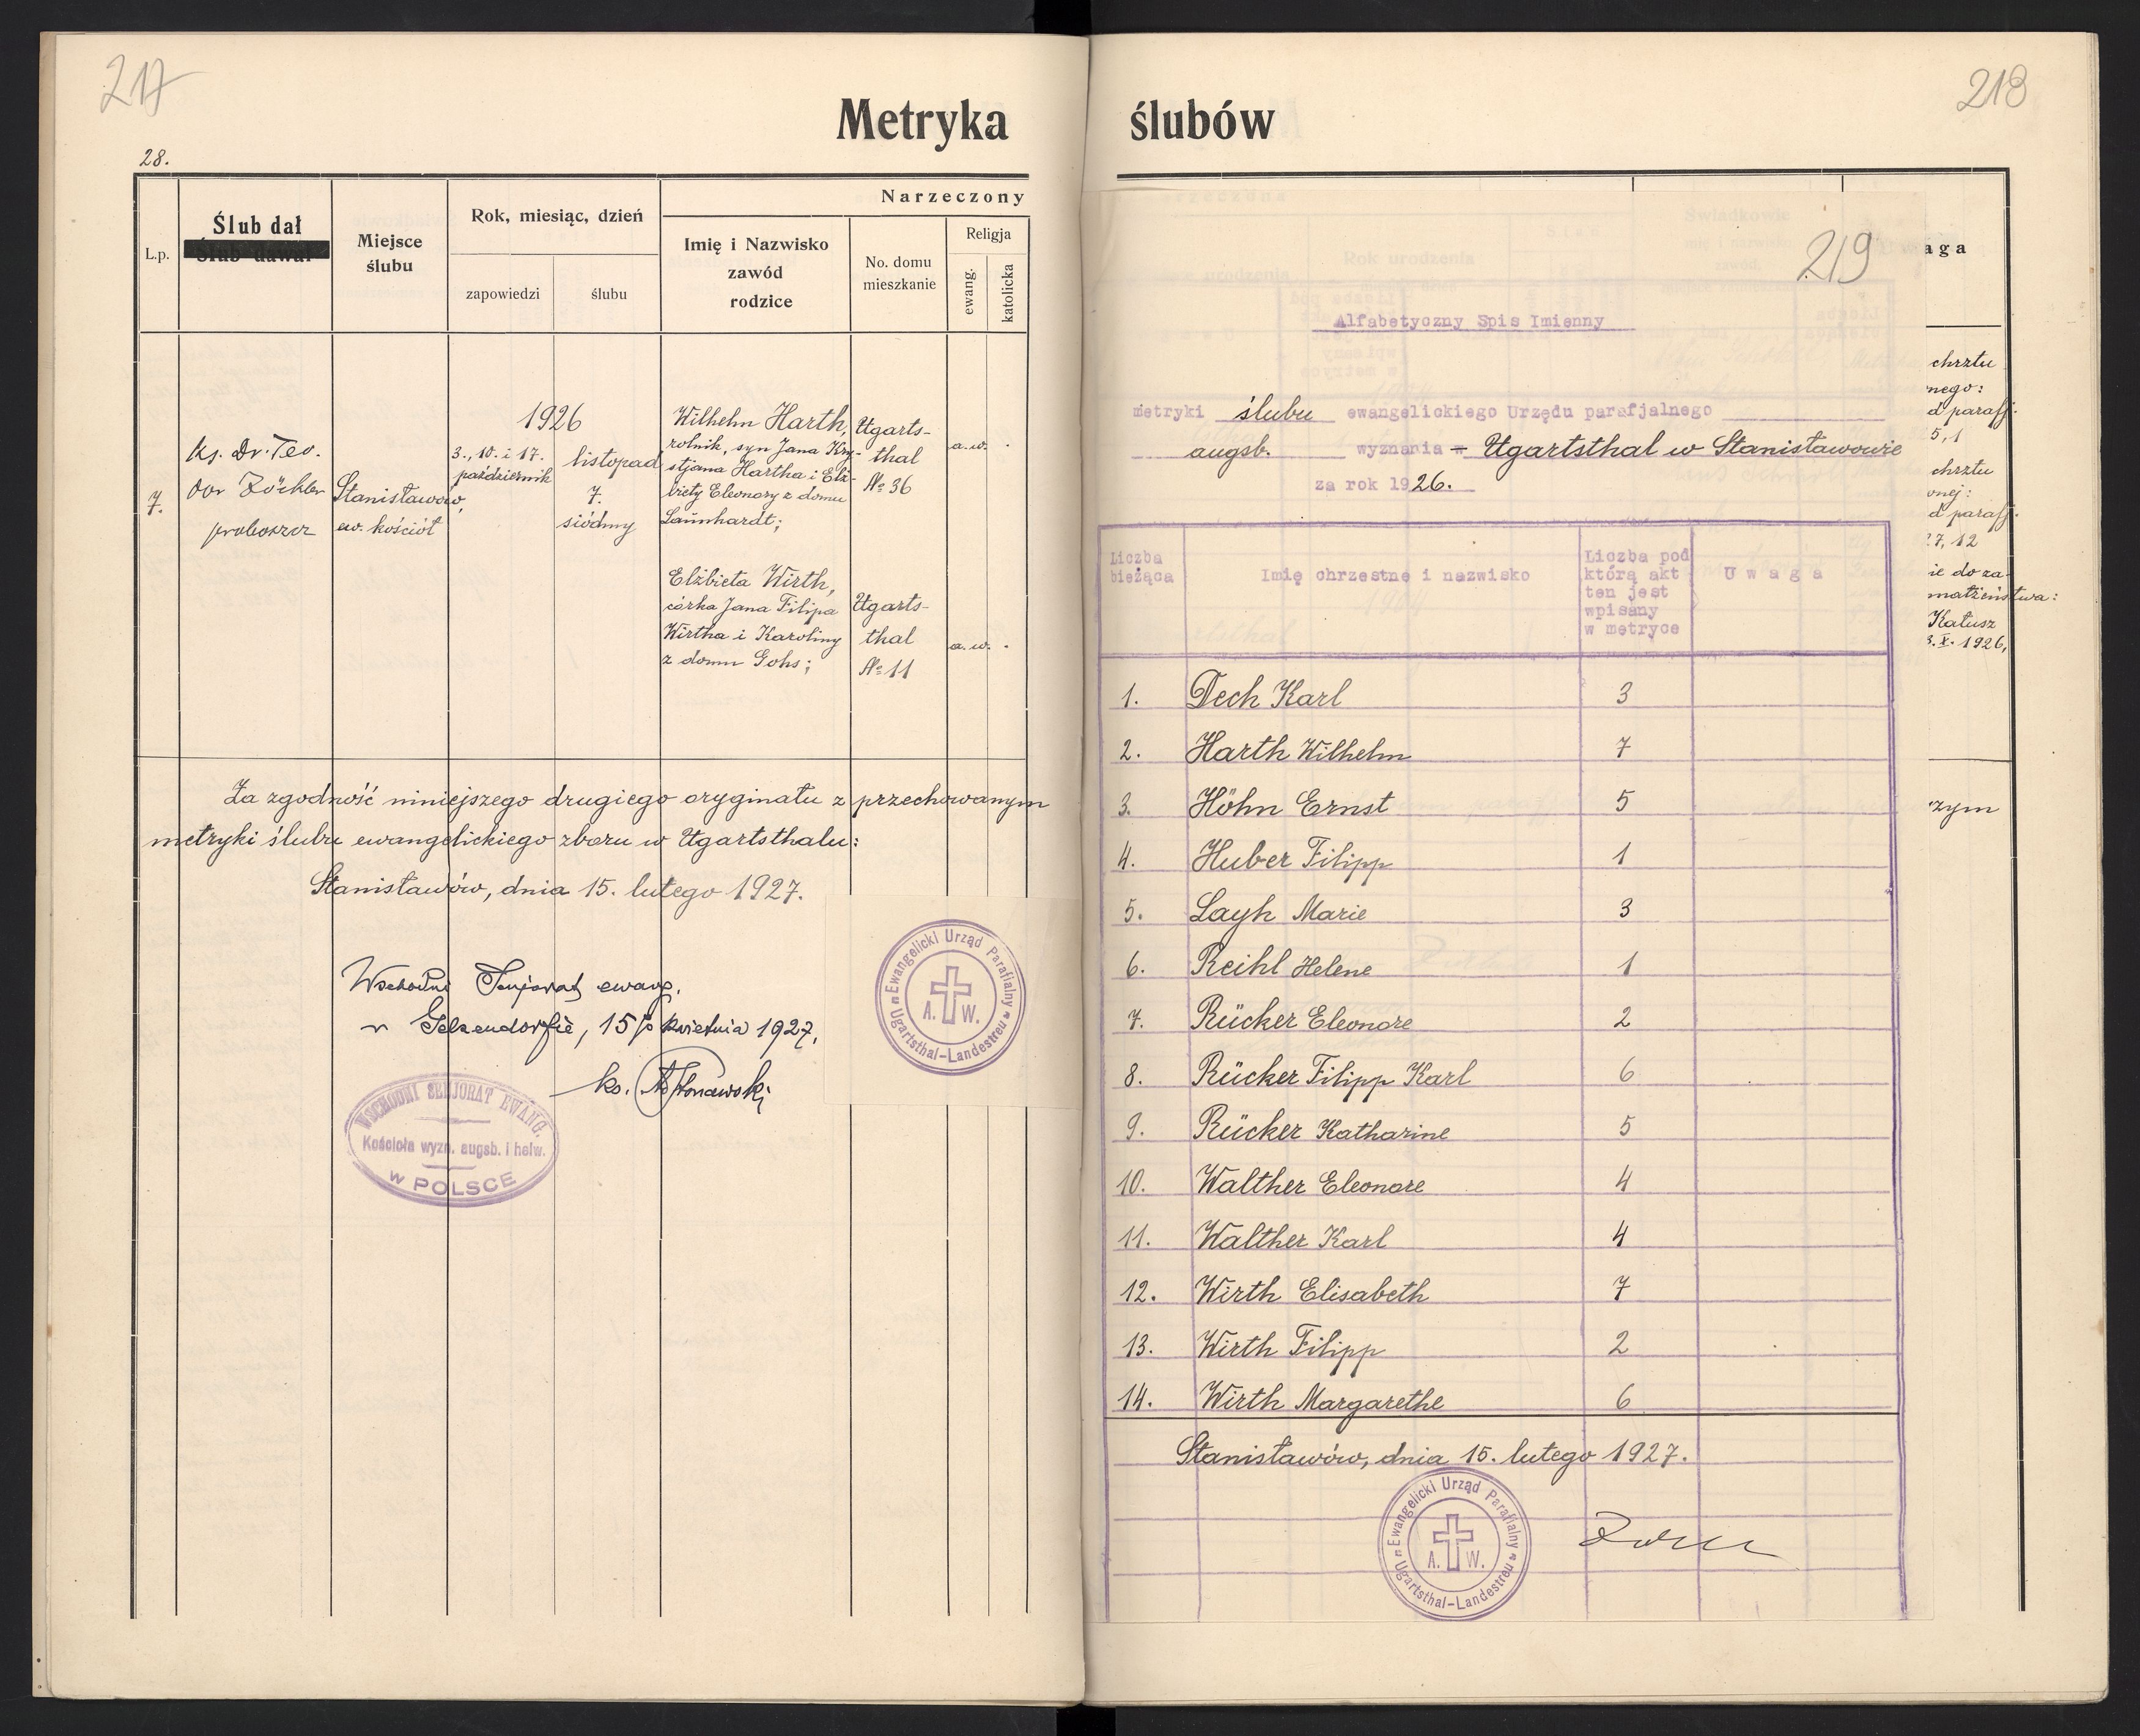 217
Metryka
28.
L.p.
Ślub dał
Ślub dawał
Miejsce
ślubu
Rok, miesiąc, dzień
zapowiedzi
ślubu
Narzeczony
Imię i Nazwisko
zawód
rodzice
No. domu
mieszkanie
Religja
ewang.
katolicka
7.
Ks. Dr. Teo.
dor Zöckler
proboszcz
Stanisławów,
ew. kościół
1926
3., 10. i 17.
październik
listopad
7.
siódmy
Wilhelm Harth,
rolnik, syn Jana Kry-
stjana Hartha i Elż-
biety Eleonory z domu
Launhardt;
Ugarts-
thal
№ 36
a. w.
Elżbieta Wirth,
córka Jana Filipa
Wirtha i Karoliny
z domu Gohs;
Ugarts-
thal
№ 11
a. w.
Za zgodność niniejszego drugiego oryginału z przechowanym
metryki ślubu ewangelickiego zboru w Ugartsthalu:
Stanisławów, dnia 15. lutego 1927.
Wschodni Senjorat ewang.
w Gelsendorfie, 15go kwietnia 1927.
ks.
WSCHODNI SENJORAT EWANG.
Kościoła wyzn. augsb. i helw.
W POLSCE
Ewangelicki Urząd Parafialny
A. W.
Ugartsthal-Landestreu
218
ślubów
219
aga
Alfabetyczny Spis Imienny
metryki ślubu ewangelickiego Urzędu parafjalnego
augsb. wyznania Ugartsthal w Stanisławowie
za rok 1926.
Liczba
bieżąca
Imię chrzestne i nazwisko
Liczba pod
którą akt
ten jest
wpisany
w metryce
Uwaga
1. Dech Karl 3
2. Harth Wilhelm 7
3. Höhn Ernst 5
4. Huber Filipp 1
5. Layh Marie 3
6. Reihl Helene 1
7. Rücker Eleonore 2
8. Rücker Filipp Karl 6
9. Rücker Katharine 5
10. Walther Eleonore 4
11. Walther Karl 4
12. Wirth Elisabeth 7
13. Wirth Filipp 2
14. Wirth Margarethe 6
Stanisławów, dnia 15. lutego 1927.
Ewangelicki Urząd Parafialny
A. W.
Ugartsthal-Landestreu
chrztu
nego:
d parafj.
5, 1
chrztu
onej:
d parafj.
7, 12
ie do za-
małżeństwa:
Kałusz
3. X. 1926,
zym